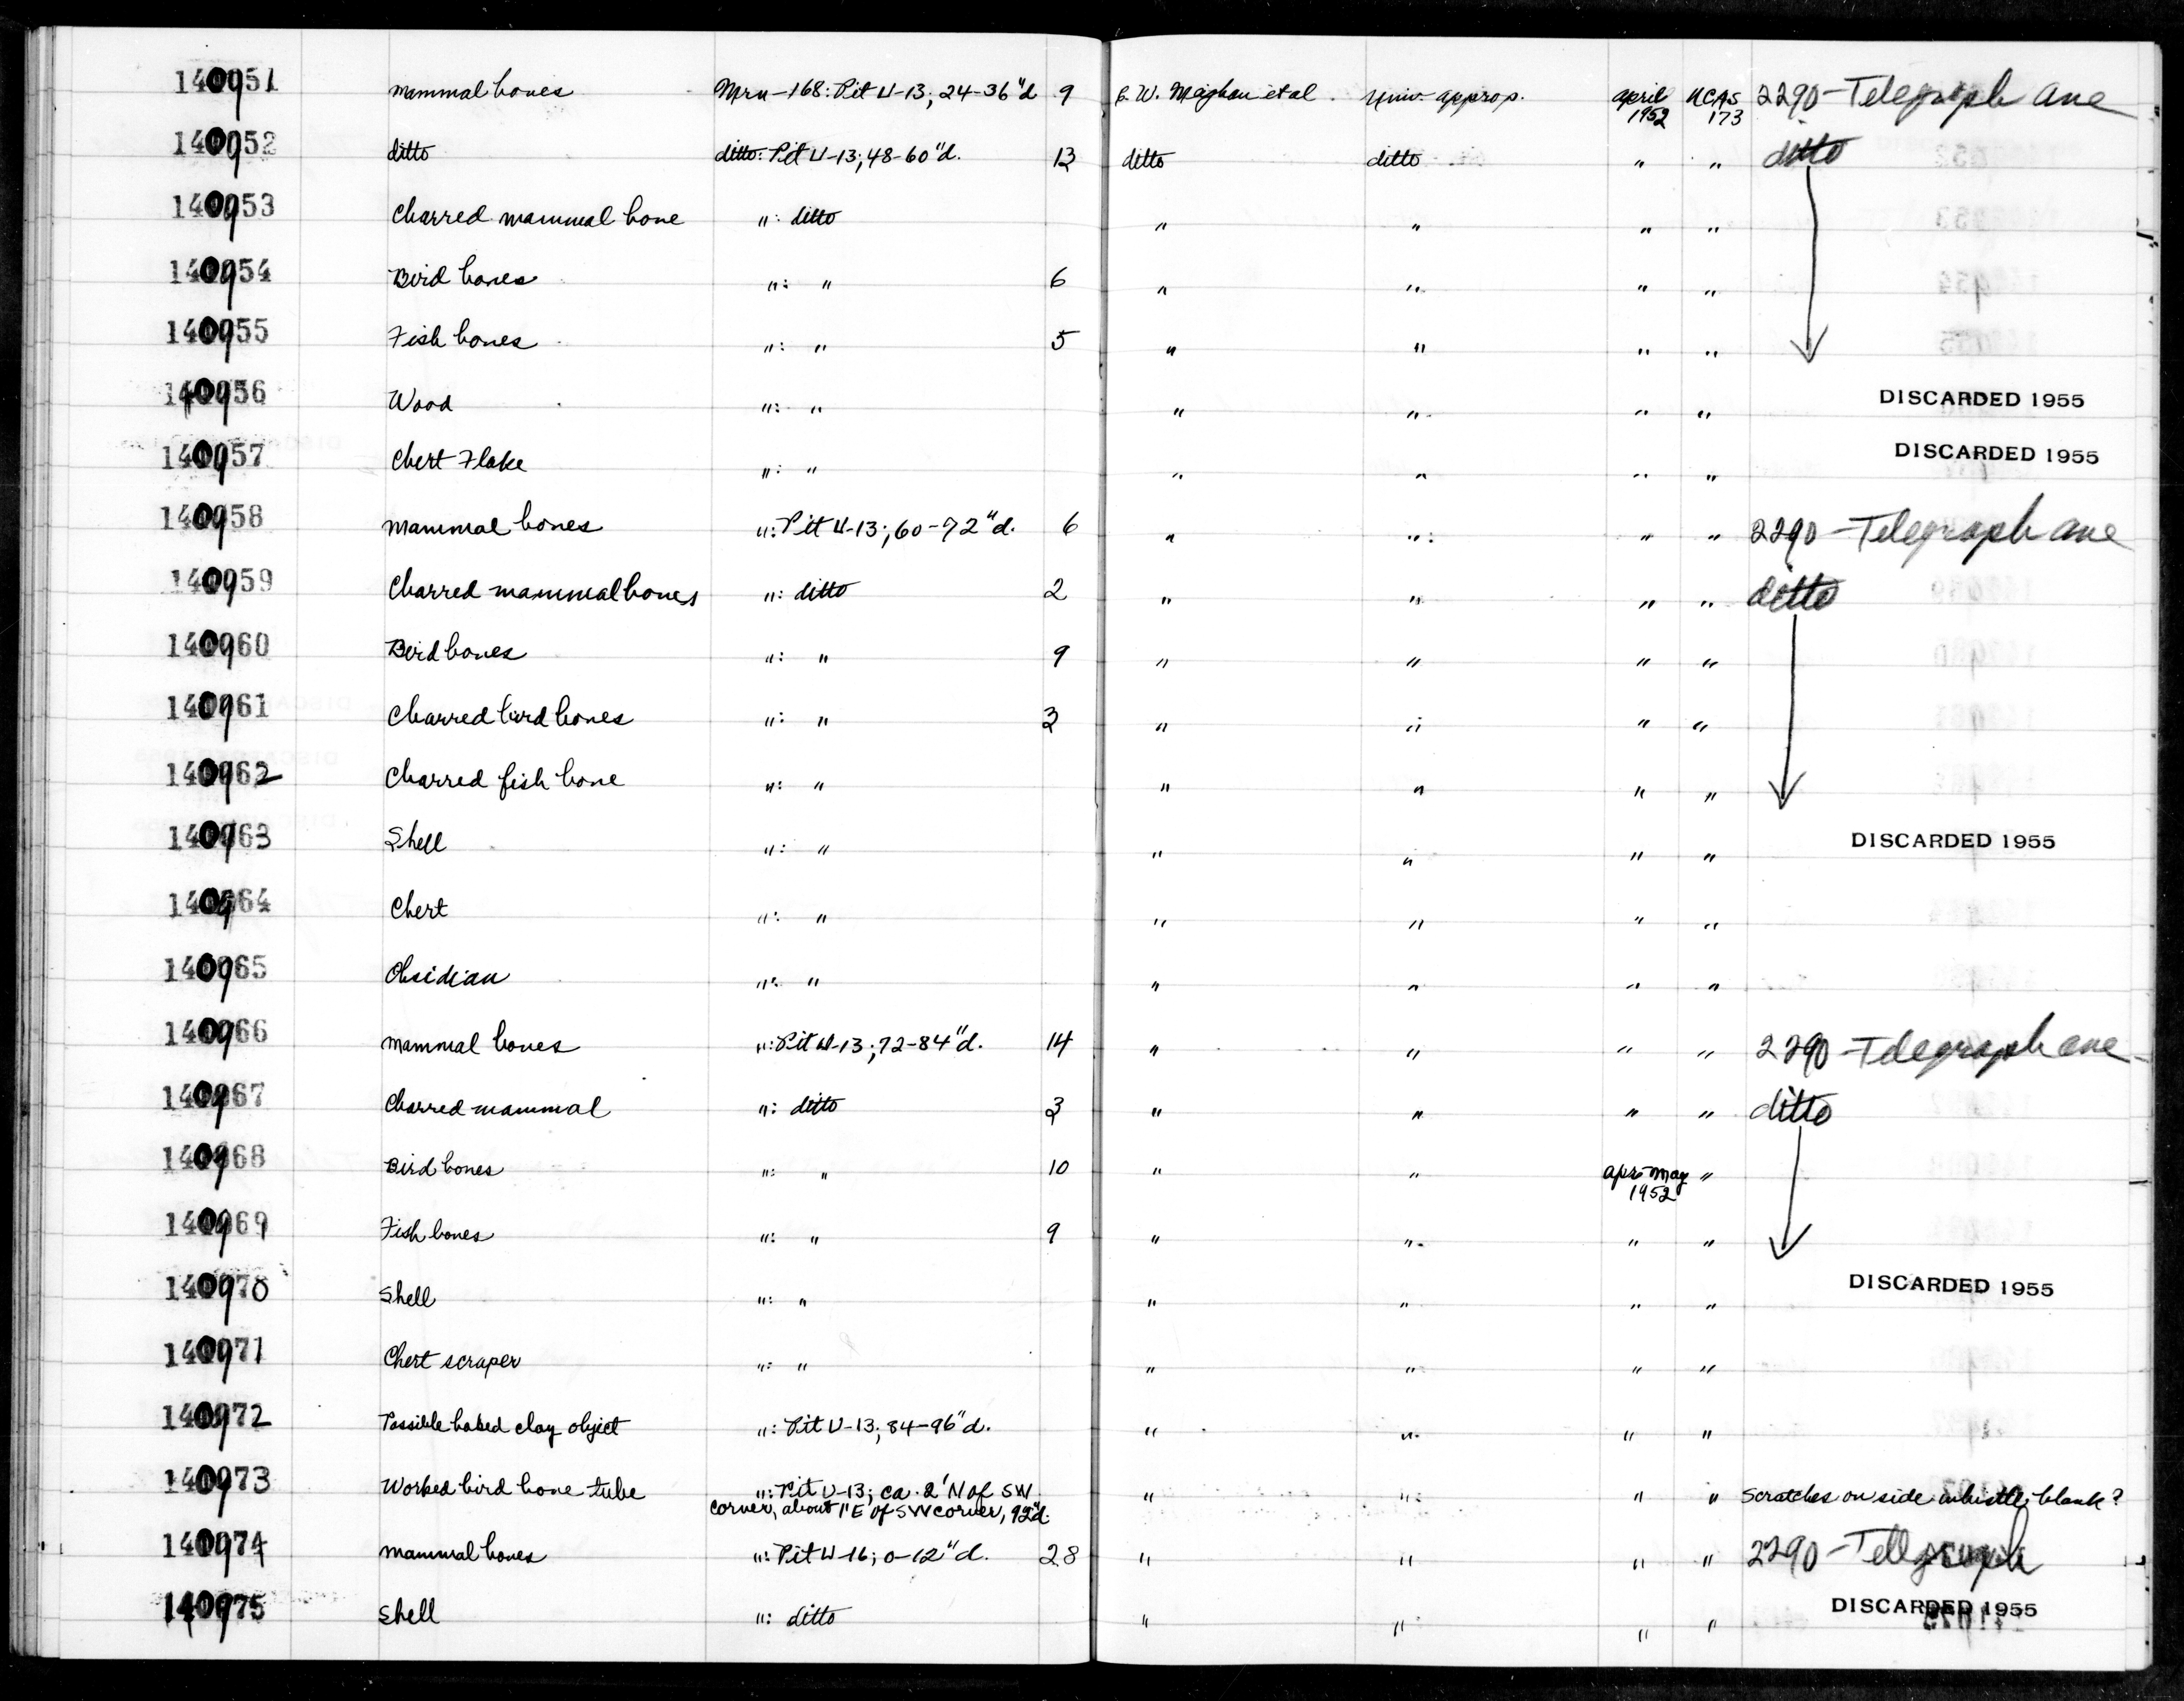 140951 mammal bones Mrn-168: Pit U-13; 24-36"d 9 C. W. Meighan et al. Univ. approp. april 1952 UCAS 173 2290-Telegraph ave
140952 ditto ditto: Pit U-13; 48-60"d. 13 ditto ditto " " ditto
140953 Charred mammal bone ": ditto " " " "
140954 Bird bones ": " 6 " " " "
140955 Fish bones ": " 5 " " " "
140956 Wood ": " " " " " DISCARDED 1955
140957 Chert Flake ": " " " " " DISCARDED 1955
140958 mammal bones ": Pit U-13; 60-72"d. 6 " " " " 2290-Telegraph ave
140959 Charred mammal bones ": ditto 2 " " " " ditto
140960 Bird bones ": " 9 " " " "
140961 Charred bird bones ": " 3 " " " "
140962 Charred fish bone ": " " " " "
140963 Shell ": " " " " " DISCARDED 1955
140964 Chert ": " " " " "
140965 Obsidian ": " " " " "
140966 mammal bones ": Pit U-13; 72-84"d. 14 " " " " 2290-Telegraph ave
140967 Charred mammal ": ditto 3 " " " " ditto
140968 Bird bones ": " 10 " " apr-may 1952 "
140969 Fish bones ": " 9 " " " "
140970 Shell ": " " " " " DISCARDED 1955
140971 Chert scraper ": " " " " "
140972 Possible baked clay object ": Pit U-13; 84-96"d. " " " "
140973 Worked bird bone tube ": Pit U-13; ca. 2' N of SW " " " " Scratches on side whistle blank?
corner, about 1' E of SW corner, 92"d.
140974 mammal bones ": Pit U-16; 0-12"d. 28 " " " " 2290-Telegraph
140975 Shell ": ditto " " " " DISCARDED 1955